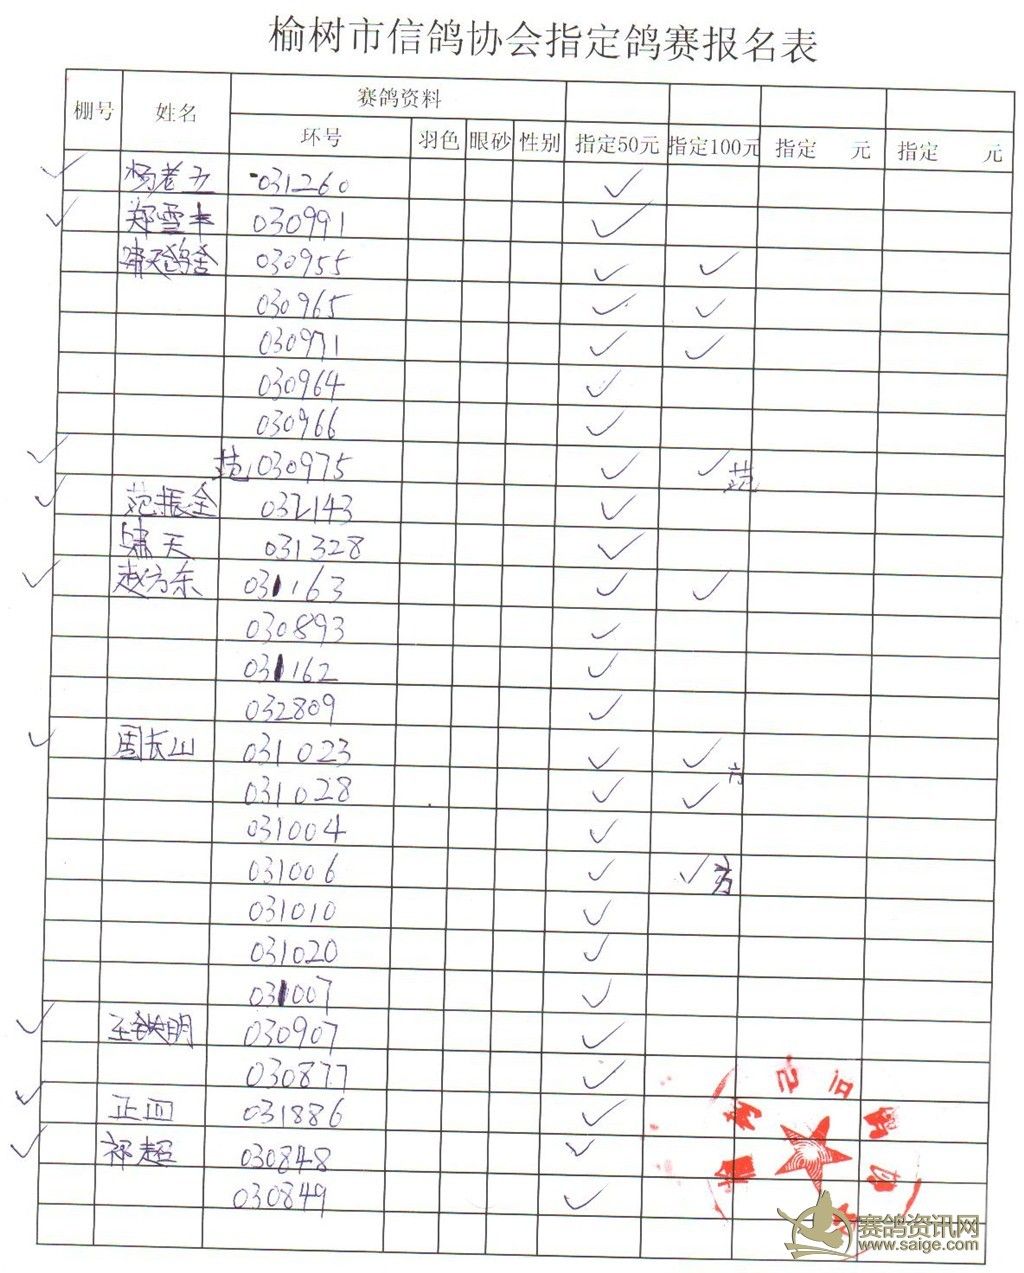 榆树市信鸽协会指定鸽赛报名表
赛鸽资料
棚号 姓名 环号 羽色 眼砂 性别 指定50元 指定100元 指定 元 指定 元
✓ 杨老五 031260 ✓
✓ 郑雪丰 030991 ✓
啸天鸽舍 030955 ✓ ✓
030965 ✓ ✓
030971 ✓ ✓
030964 ✓
030966 ✓
✓ 范 030975 ✓ ✓ 范
✓ 范振全 032143 ✓
啸天 031328 ✓
✓ 赵方东 031163 ✓ ✓
030893 ✓
031162 ✓
032809 ✓
✓ 周长山 031023 ✓ ✓ 方
031028 ✓ ✓
031004 ✓
031006 ✓ ✓ 方
031010 ✓
031020 ✓
031007 ✓
✓ 王铁明 030907 ✓
030877 ✓
✓ 正四 031886 ✓
✓ 祁超 030848 ✓
030849 ✓
赛鸽资讯网
www.saige.com